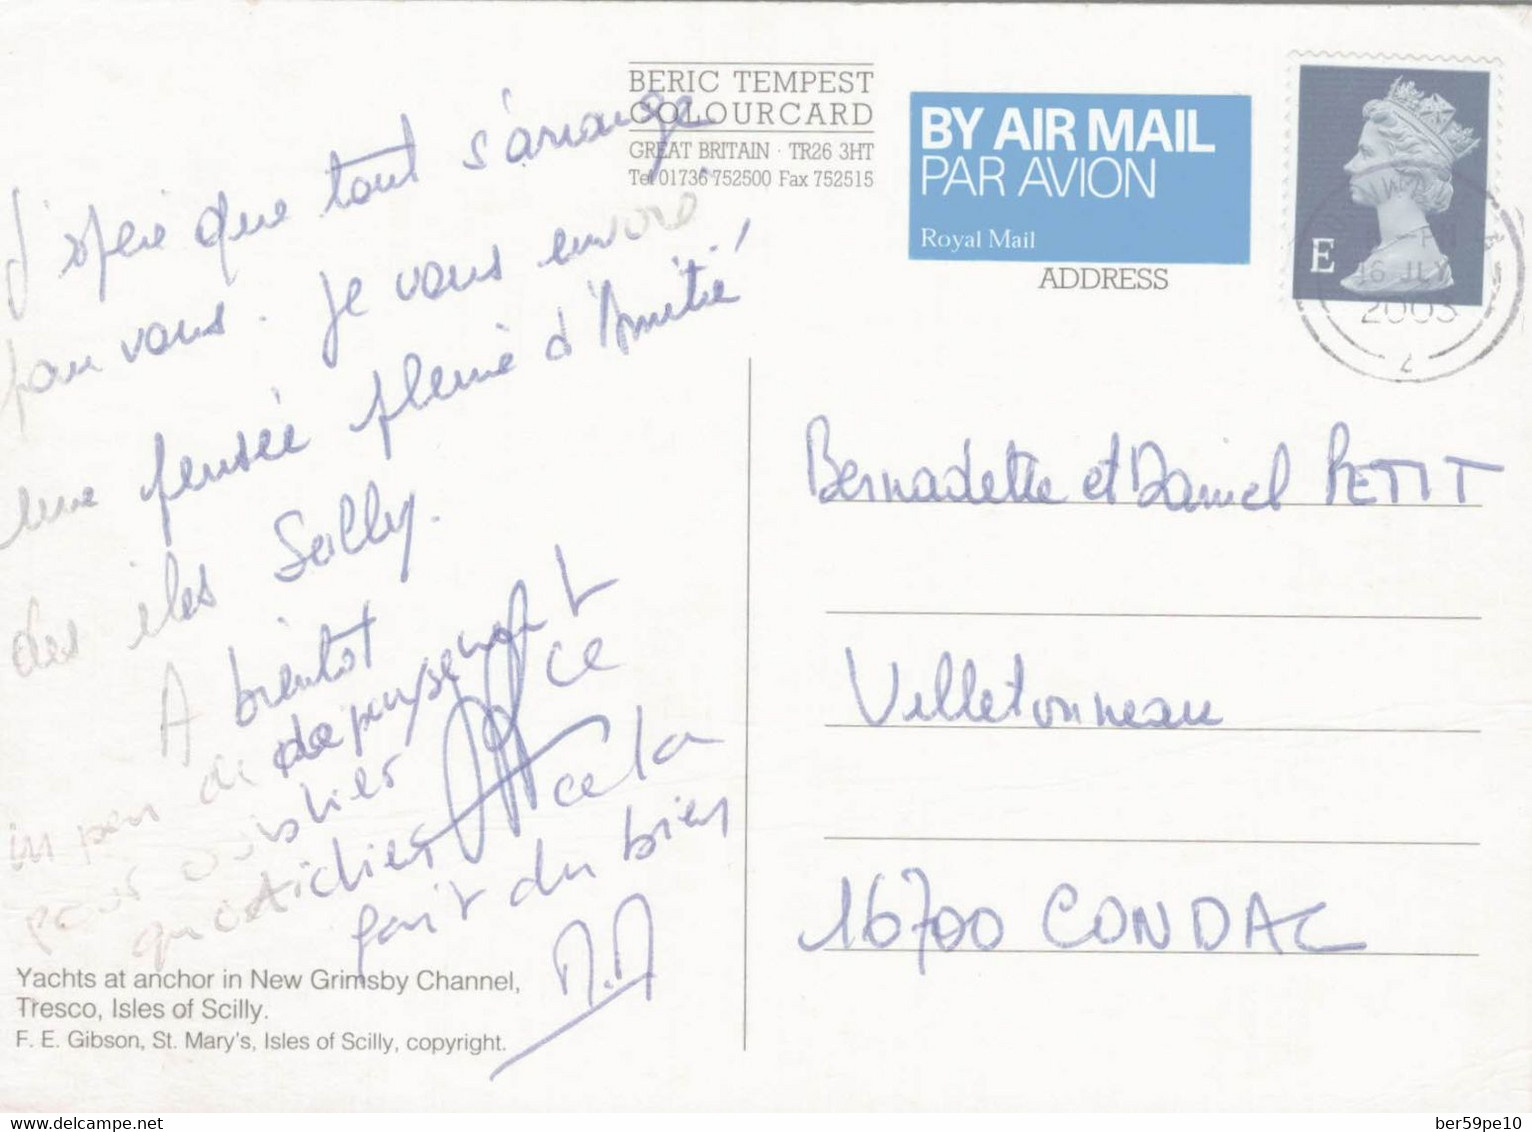 J'espère que tout s'arrange
pour vous. Je vous envoie
une pensée pleine d'Amitié
des iles Scilly.
A bientot
un peu de depaysement
pour oublier ce
quotidien cela
fait du bien
BERIC TEMPEST
COLOURCARD
GREAT BRITAIN · TR26 3HT
Tel 01736 752500 Fax 752515
BY AIR MAIL
PAR AVION
Royal Mail
ADDRESS
E
16 JLY
2003
2
Bernadette et Daniel PETIT
Villetonneau
16700 CONDAC
Yachts at anchor in New Grimsby Channel,
Tresco, Isles of Scilly.
F. E. Gibson, St. Mary's, Isles of Scilly, copyright.
delcampe.net
ber59pe10